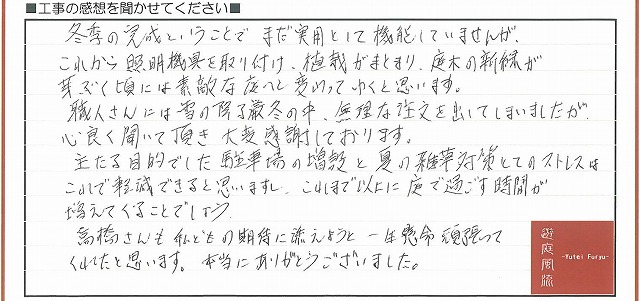 ■工事の感想を聞かせてください■
冬季の完成ということで まだ実用として機能していませんが、
これから照明機具を取り付け、植栽がまとまり、庭木の新緑が
芽ぶく頃には素敵な庭へと変わってゆくと思います。
職人さんには雪の降る厳冬の中、無理な注文を出してしまいましたが
心良く聞いて頂き大変感謝しております。
主たる目的でした駐車場の増設と夏の雑草対策としてのストレスは
これで軽減できると思いますし、これまで以上に庭で過ごす時間が
増えてくることでしょう。
高橋さんも私どもの期待に添えようと一生懸命頑張って
くれたと思います。本当にありがとうございました。
遊庭風流
-Yutei Furyu-